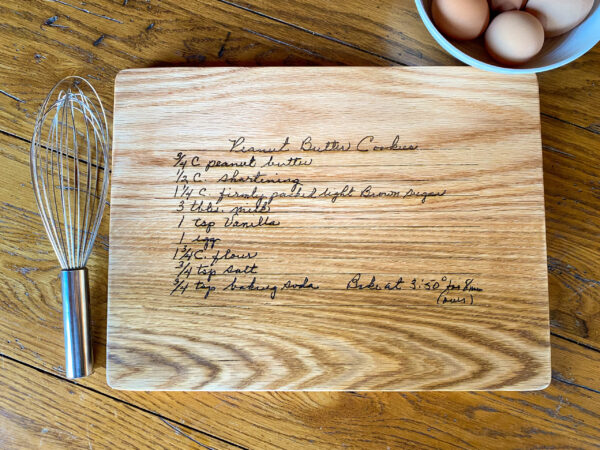 Peanut Butter Cookies
3/4 C peanut butter
1/2 C. shortining
1 1/4 C. firmly packed light Brown sugar
3 tbls. milk
1 tsp Vanilla
1 egg
1 3/4 C. flour
3/4 tsp salt
3/4 tsp baking soda Bake at 350° for 8 min
(ours)